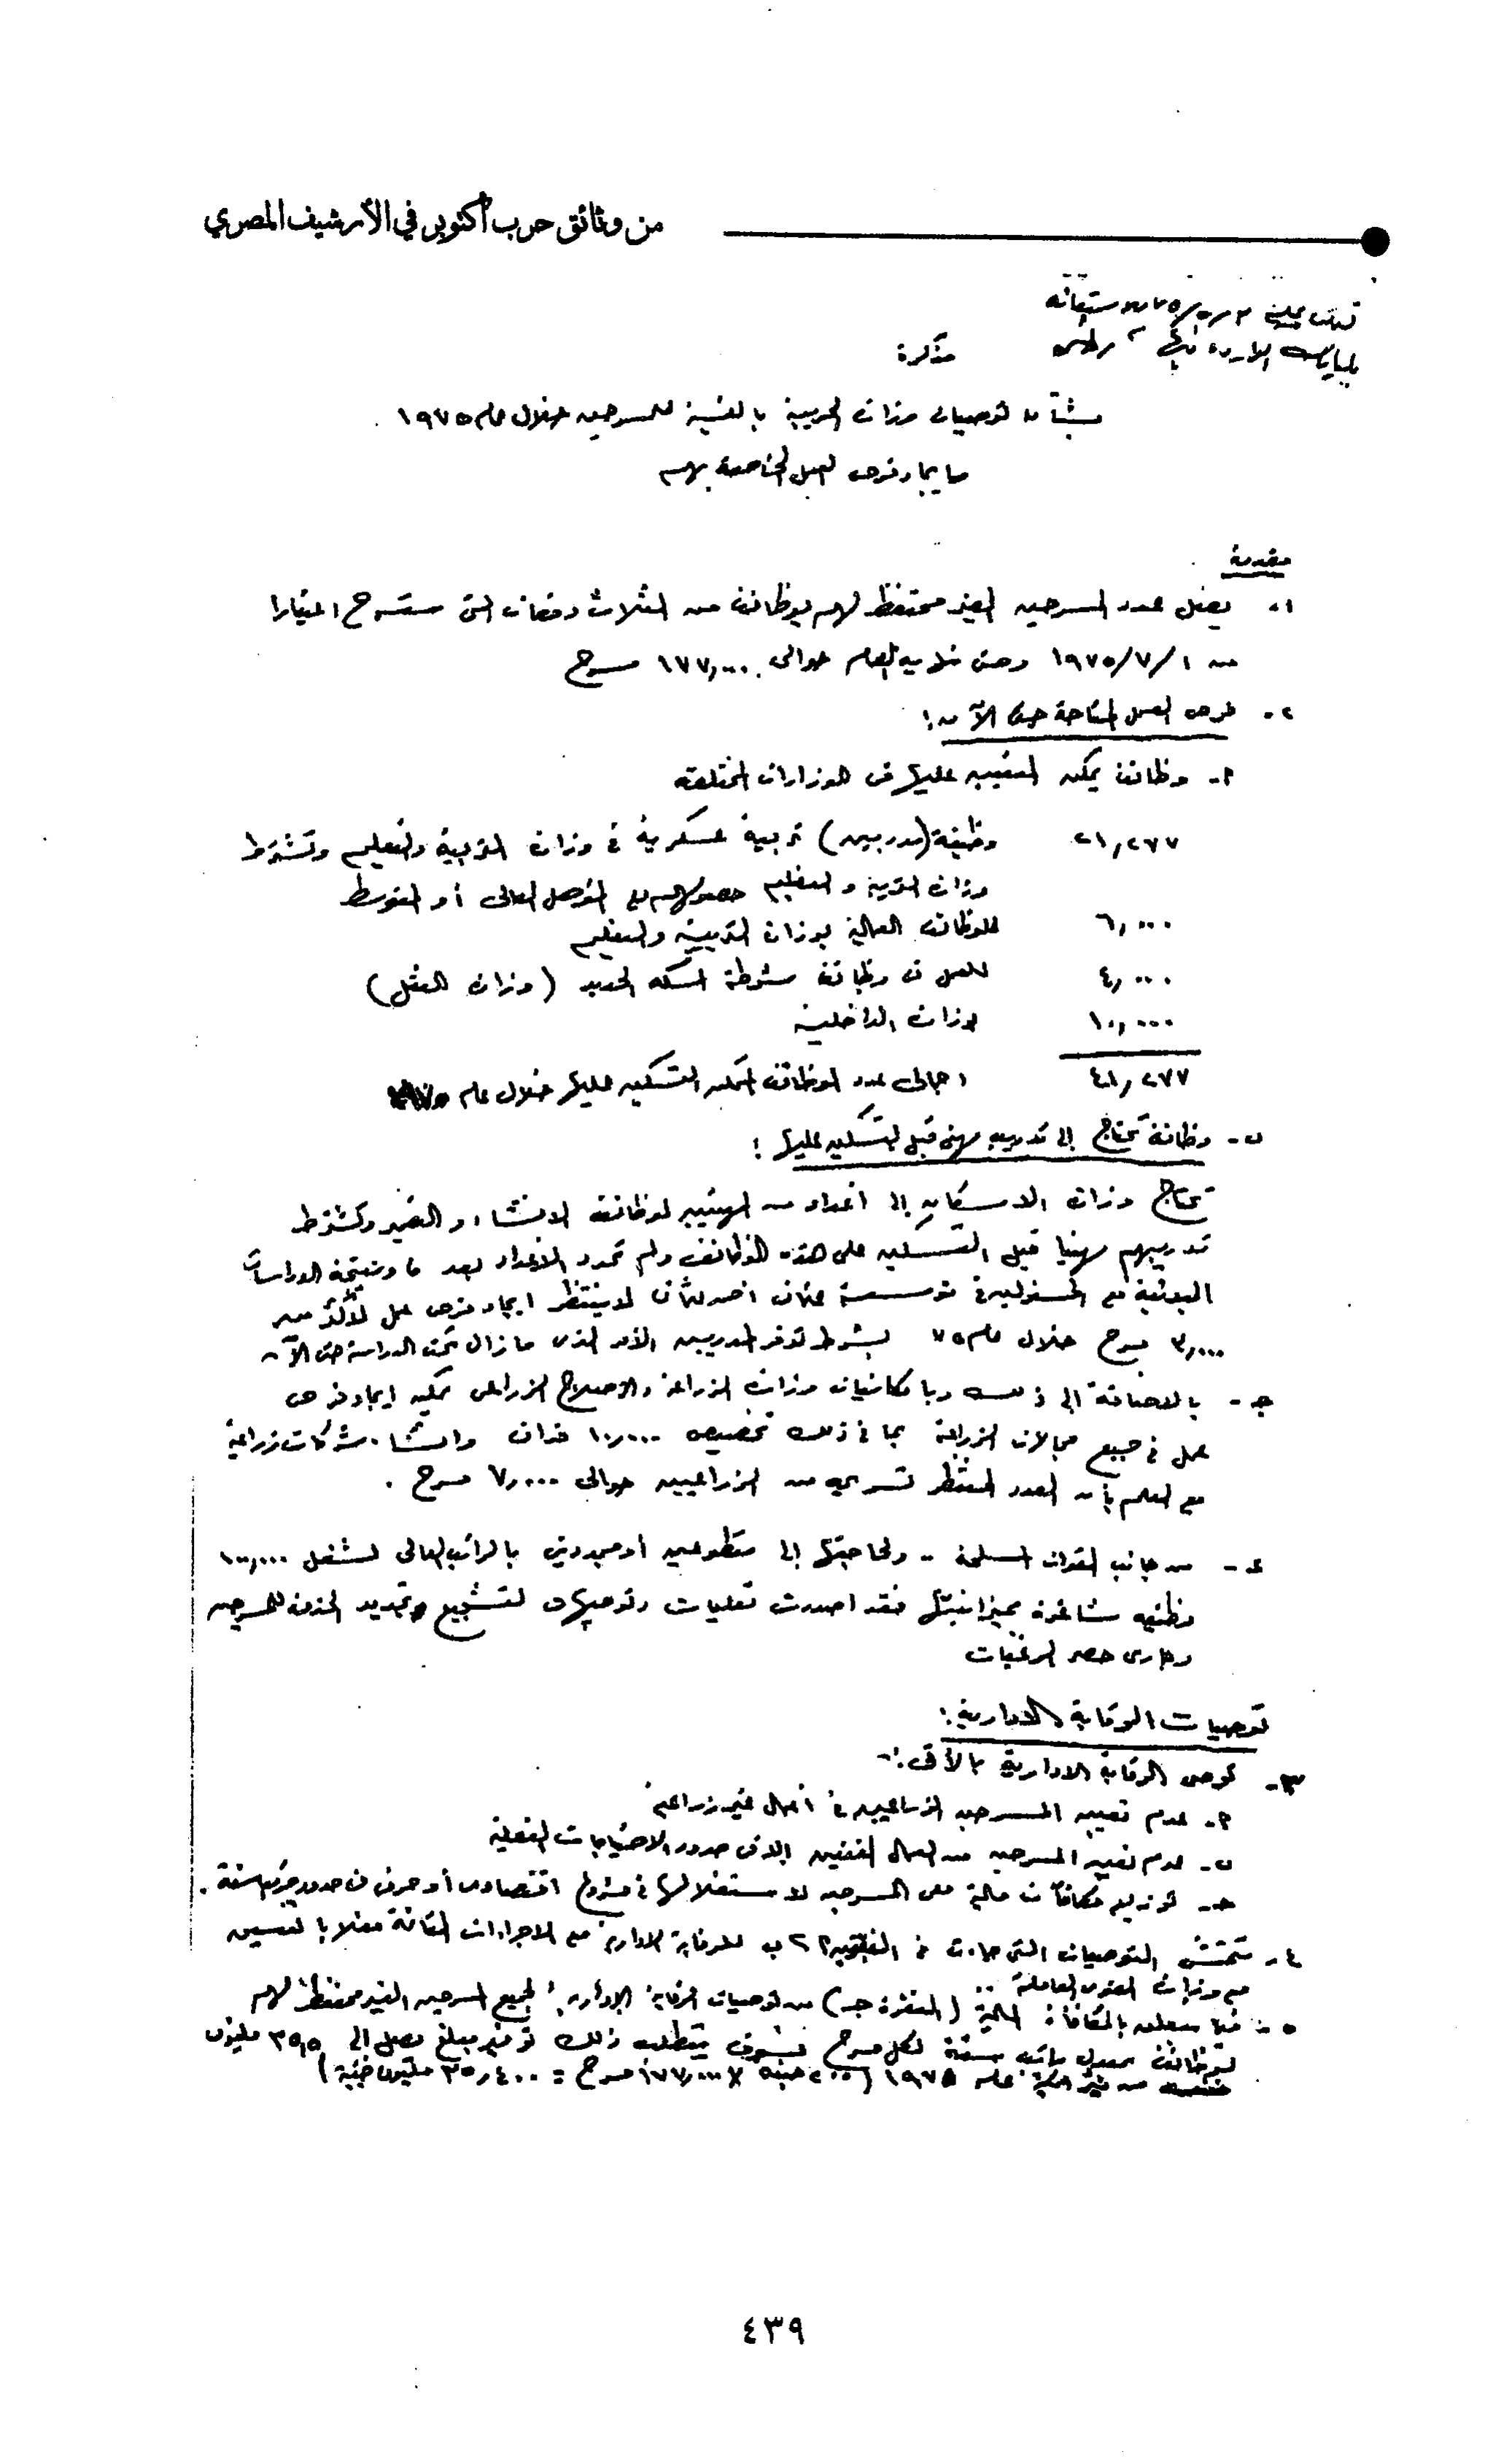 من وثائق حرب أكتوبر في الأرشيف المصري
مذكرة
بشأن توصيات وزارة الحربية بالنسبة للمسرحين خلال عام ١٩٧٥
وإيجاد فرص العمل الخاصة بهم
مقدمة
١- يصل عدد المسرحين الغير محتفظ لهم بوظائف من الثلاث دفعات التى ستسرح اعتبارا
من ١/٧/١٩٧٥ وحتى العام حوالى ١٧٧,٠٠٠ مسرح
٢- فرص العمل المتاحة حتى الآن :
أ- وظائف يمكن التعيين عليها فى الوزارات المختلفة
٢١,٢٧٧ وظيفة (مدربين) تربية عسكرية فى وزارة التربية والتعليم وتشترط
وزارة التربية والتعليم حصولهم على المؤهل العالى أو المتوسط
٦,٠٠٠ للوظائف العمالية بوزارة التربية والتعليم
٤,٠٠٠ للعمل فى وظائف شرطة السكه الحديد (وزارة النقل)
١٠,٠٠٠ بوزارة الداخلية
٤١,٢٧٧ اجمالى عدد الوظائف الممكن التسكين عليها خلال عام
ب- وظائف تحتاج إلى تدريب مهنى قبل التسكين عليها :
تحتاج وزارة الاسكان إلى أعداد من المهنيين لوظائف الانشاء والتعمير وتشترط
تدريبهم مهنيا قبل التسكين على هذه الوظائف ولم تحدد الاعداد بعد ونتيجة الدراسات
المبدئية مع المسئولين فى مؤسسة عثمان أحمد عثمان لا ينتظر ايجاد فرص عمل لأكثر من
٣,٠٠٠ مسرح خلال عام ٧٥ بشرط توفر المدربين الأمر الذى مازال تحت الدراسة حتى الآن
جـ- بالاضافة الى ذلك وبامكانيات وزارة الزراعة والاصلاح الزراعى يمكن ايجاد فرص
عمل فى جميع مجالات الزراعة بما فى ذلك تخصيص ١٠,٠٠٠ فدان وانشاء شركات زراعية
مع العلم بأن العدد المنتظر تسريحه من الزراعيين حوالى ٧٠,٠٠٠ مسرح .
د- من جانب القوات المسلحة .. ولحاجتها إلى متطوعين أو مجددين بالراتب العالى لشغل ١٠٠,٠٠٠
وظيفه شاغرة بميزانيتها فقد اصدرت تعليمات وتوجيهات لتشجيع وتمديد الخدمة للمسرحين
وجارى حصر الرغبات
توصيات الرقابة الادارية :
٣- توصى الرقابة الادارية بالآتى :-
أ- عدم تعيين المسرحين الزراعيين فى أعمال غير زراعية
ب- عدم تعيين المسرحين من العمال الفنيين إلا فى حدود الاحتياجات الفعلية
جـ- توزيع مكافآت مالية على المسرحين لاستغلالها فى مشروع اقتصادى أو حرفى فى حدود مرتب سنة .
٤- تتمشى التوصيات التى جاءت فى الفقرتين أ ، ب للرقابة الادارية مع الاجراءات القائمة فعلا بالتنسيق
مع وزارة القوى العاملة ..
٥- فيما يتعلق بالمكافأة المالية (الفقرة جـ) من توصيات الرقابة الإدارية لجميع المسرحين الغير محتفظ لهم
بوظائف بمعدل راتب سنة لكل مسرح فسوف يتطلب ذلك توفير مبلغ يصل إلى ٣٥,٥ مليون
جنيه من ميزانية عام ١٩٧٥ (٢٠٠ جنيه × ١٧٧,٠٠٠ مسرح = ٣٥,٤٠٠ مليون جنيه)
٤٣٩